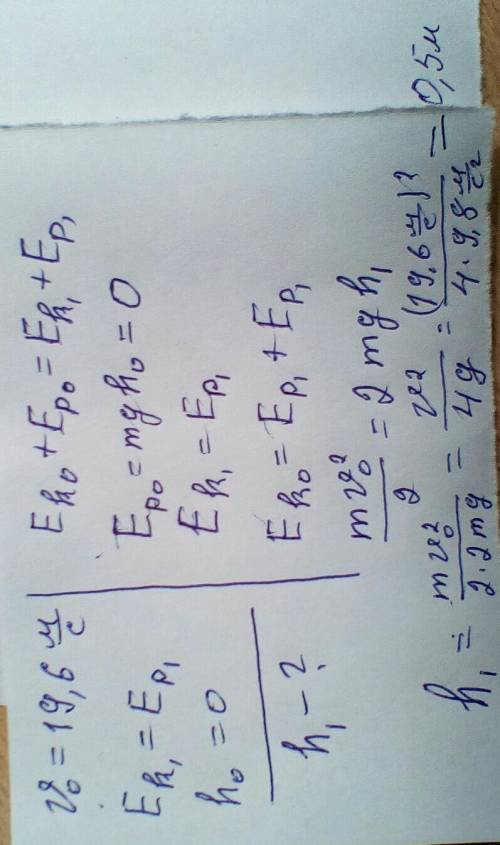 v₀ = 19,6 м/с
Eк₁ = Eр₁
h₀ = 0
h₁ - ?
Eк₀ + Eр₀ = Eк₁ + Eр₁
Eр₀ = mgh₀ = 0
Eк₁ = Eр₁
Eк₀ = Eр₁ + Eр₁
mv₀²/2 = 2mgh₁
h₁ = mv₀²/2·2mg = v²/4g = (19,6 м/с)²/4·9,8 м/с² = 0,5м